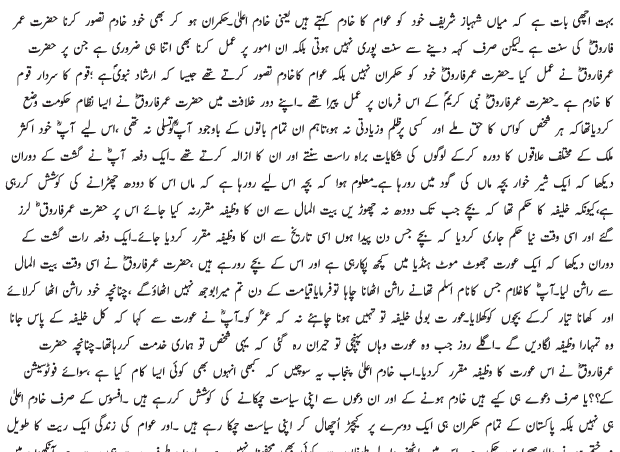 بہت اچھی بات ہے کہ میاں شہباز شریف خود کو عوام کا خادم کہتے ہیں یعنی خادم اعلیٰ۔حکمران ہو کر بھی خود خادم تصور کرنا حضرت عمر
فاروقؓ کی سنت ہے ۔لیکن صرف کہہ دینے سے سنت پوری نہیں ہوتی بلکہ ان امور پر عمل کرنا بھی اتنا ہی ضروری ہے جن پر حضرت
عمرفاروقؓ نے عمل کیا ۔حضرت عمرفاروقؓ خود کو حکمران نہیں بلکہ عوام کاخادم تصور کرتے تھے جیسا کہ ارشاد نبویؐ ہے ؛قوم کا سردار قوم
کا خادم ہے ۔حضرت عمرفاروقؓ نبی کریمؐ کے اس فرمان پر عمل پیرا تھے ۔اپنے دور خلافت میں حضرت عمرفاروقؓ نے ایسا نظام حکومت وضع
کردیاتھاکہ ہر شخص کواس کا حق ملے اور کسی پرظلم وزیادتی نہ ہو،تاہم ان تمام باتوں کے باوجود آپؓ کوتسلی نہ تھی ،اس لیے آپؓ خود اکثر
ملک کے مختلف علاقوں کا دورہ کرکے لوگوں کی شکایات براہ راست سنتے اور ان کا ازالہ کرتے تھے ۔ایک دفعہ آپؓ نے گشت کے دوران
دیکھا کہ ایک شیر خوار بچہ ماں کی گود میں رورہا ہے۔معلوم ہوا کہ بچہ اس لیے رورہا ہے کہ ماں اس کا دودھ چھڑانے کی کوشش کررہی
ہے،کیونکہ خلیفہ کا حکم تھا کہ بچے جب تک دودھ نہ چھوڑیں بیت المال سے ان کا وظیفہ مقررنہ کیا جائے اس پر حضرت عمرفاروق ؓ لرز
گئے اور اسی وقت نیا حکم جاری کردیا کہ بچے جس دن پیدا ہوں اسی تاریخ سے ان کا وظیفہ مقرر کردیا جائے۔ایک دفعہ رات گشت کے
دوران دیکھا کہ ایک عورت جھوٹ موٹ ہنڈیا میں کچھ پکارہی ہے اور اس کے بچے رورہے ہیں ،حضرت عمرفاروقؓ نے اسی وقت بیت المال
سے راشن لیا۔آپؓ کاغلام جس کانام اسلم تھانے راشن اٹھانا چاہا توفرمایاقیامت کے دن تم میرابوجھ نہیں اٹھاؤگے ،چنانچہ خود راشن اٹھا کرلائے
اور کھانا تیار کرکے بچوں کوکھلایا۔عورت بولی خلیفہ تو تمہیں ہونا چاہئے نہ کہ عمرؓ کو۔آپؓ نے عورت سے کہا کہ کل خلیفہ کے پاس جانا
وہ تمہارا وظیفہ لگادیں گے ۔اگلے روز جب وہ عورت وہاں پہنچی تو حیران رہ گئی کہ یہی شخص تو ہماری خدمت کررہاتھا۔چنانچہ حضرت
عمرفاروقؓ نے اس عورت کا وظیفہ مقرر کردیا۔اب خادم اعلیٰ پنجاب یہ سوچیں کہ کبھی انہوں بھی کوئی ایسا کام کیا ہے ،سوائے فوٹوسیشن
کے؟؟؟یا صرف دعوے ہی کیے ہیں خادم ہونے کے اور ان دعوں سے اپنی سیاست چمکانے کی کوشش کررہے ہیں ۔افسوس کے صرف خادم اعلیٰ
ہی نہیں بلکہ پاکستان کے تمام حکمران ہی ایک دوسرے پر کیچڑ اُچھال کر اپنی سیاست چمکا رہے ہیں ۔اور عوام کی زندگی ایک ریت کا طویل